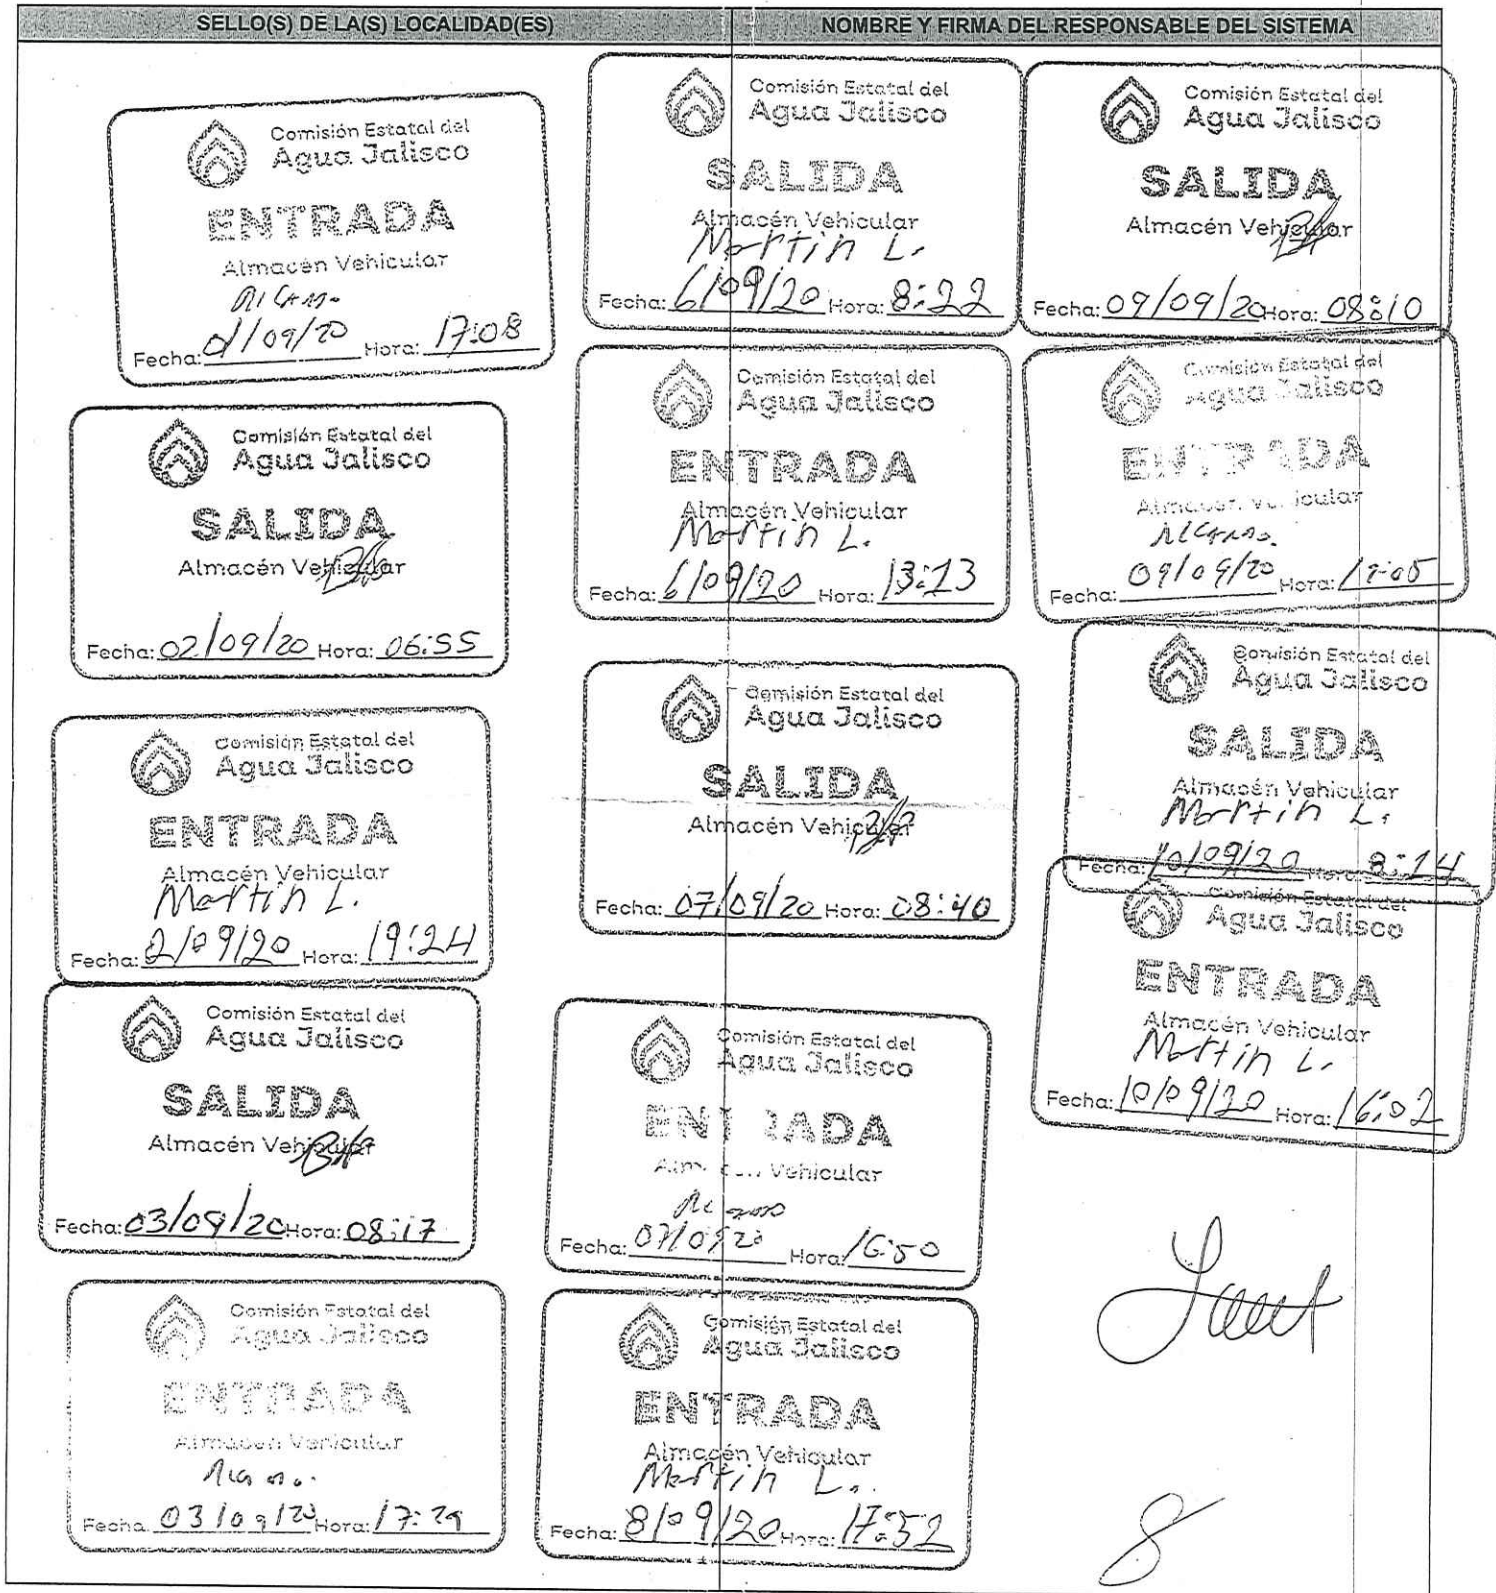 SELLO(S) DE LA(S) LOCALIDAD(ES)
NOMBRE Y FIRMA DEL RESPONSABLE DEL SISTEMA
Comisión Estatal del
Agua Jalisco
ENTRADA
Almacén Vehicular
Fecha: 01/09/20 Hora: 17:08
Comisión Estatal del
Agua Jalisco
SALIDA
Almacén Vehicular
Fecha: 02/09/20 Hora: 06:55
Comisión Estatal del
Agua Jalisco
ENTRADA
Almacén Vehicular
Martin L.
Fecha: 2/09/20 Hora: 19:24
Comisión Estatal del
Agua Jalisco
SALIDA
Almacén Vehicular
Fecha: 03/09/20 Hora: 08:17
Comisión Estatal del
Agua Jalisco
ENTRADA
Almacén Vehicular
Fecha: 03/09/20 Hora: 17:29
Comisión Estatal del
Agua Jalisco
SALIDA
Almacén Vehicular
Martin L.
Fecha: 6/09/20 Hora: 8:22
Comisión Estatal del
Agua Jalisco
ENTRADA
Almacén Vehicular
Martin L.
Fecha: 6/09/20 Hora: 13:13
Comisión Estatal del
Agua Jalisco
SALIDA
Almacén Vehicular
Fecha: 07/09/20 Hora: 08:40
Comisión Estatal del
Agua Jalisco
ENTRADA
Almacén Vehicular
Fecha: 07/09/20 Hora: 16:50
Comisión Estatal del
Agua Jalisco
ENTRADA
Almacén Vehicular
Martin L.
Fecha: 8/09/20 Hora: 17:52
Comisión Estatal del
Agua Jalisco
SALIDA
Almacén Vehicular
Fecha: 09/09/20 Hora: 08:10
Comisión Estatal del
Agua Jalisco
ENTRADA
Almacén Vehicular
Fecha: 09/09/20 Hora:
Comisión Estatal del
Agua Jalisco
SALIDA
Almacén Vehicular
Martin L.
Fecha: 10/09/20 Hora: 8:14
Comisión Estatal del
Agua Jalisco
ENTRADA
Almacén Vehicular
Martin L.
Fecha: 10/09/20 Hora: 16:02
8